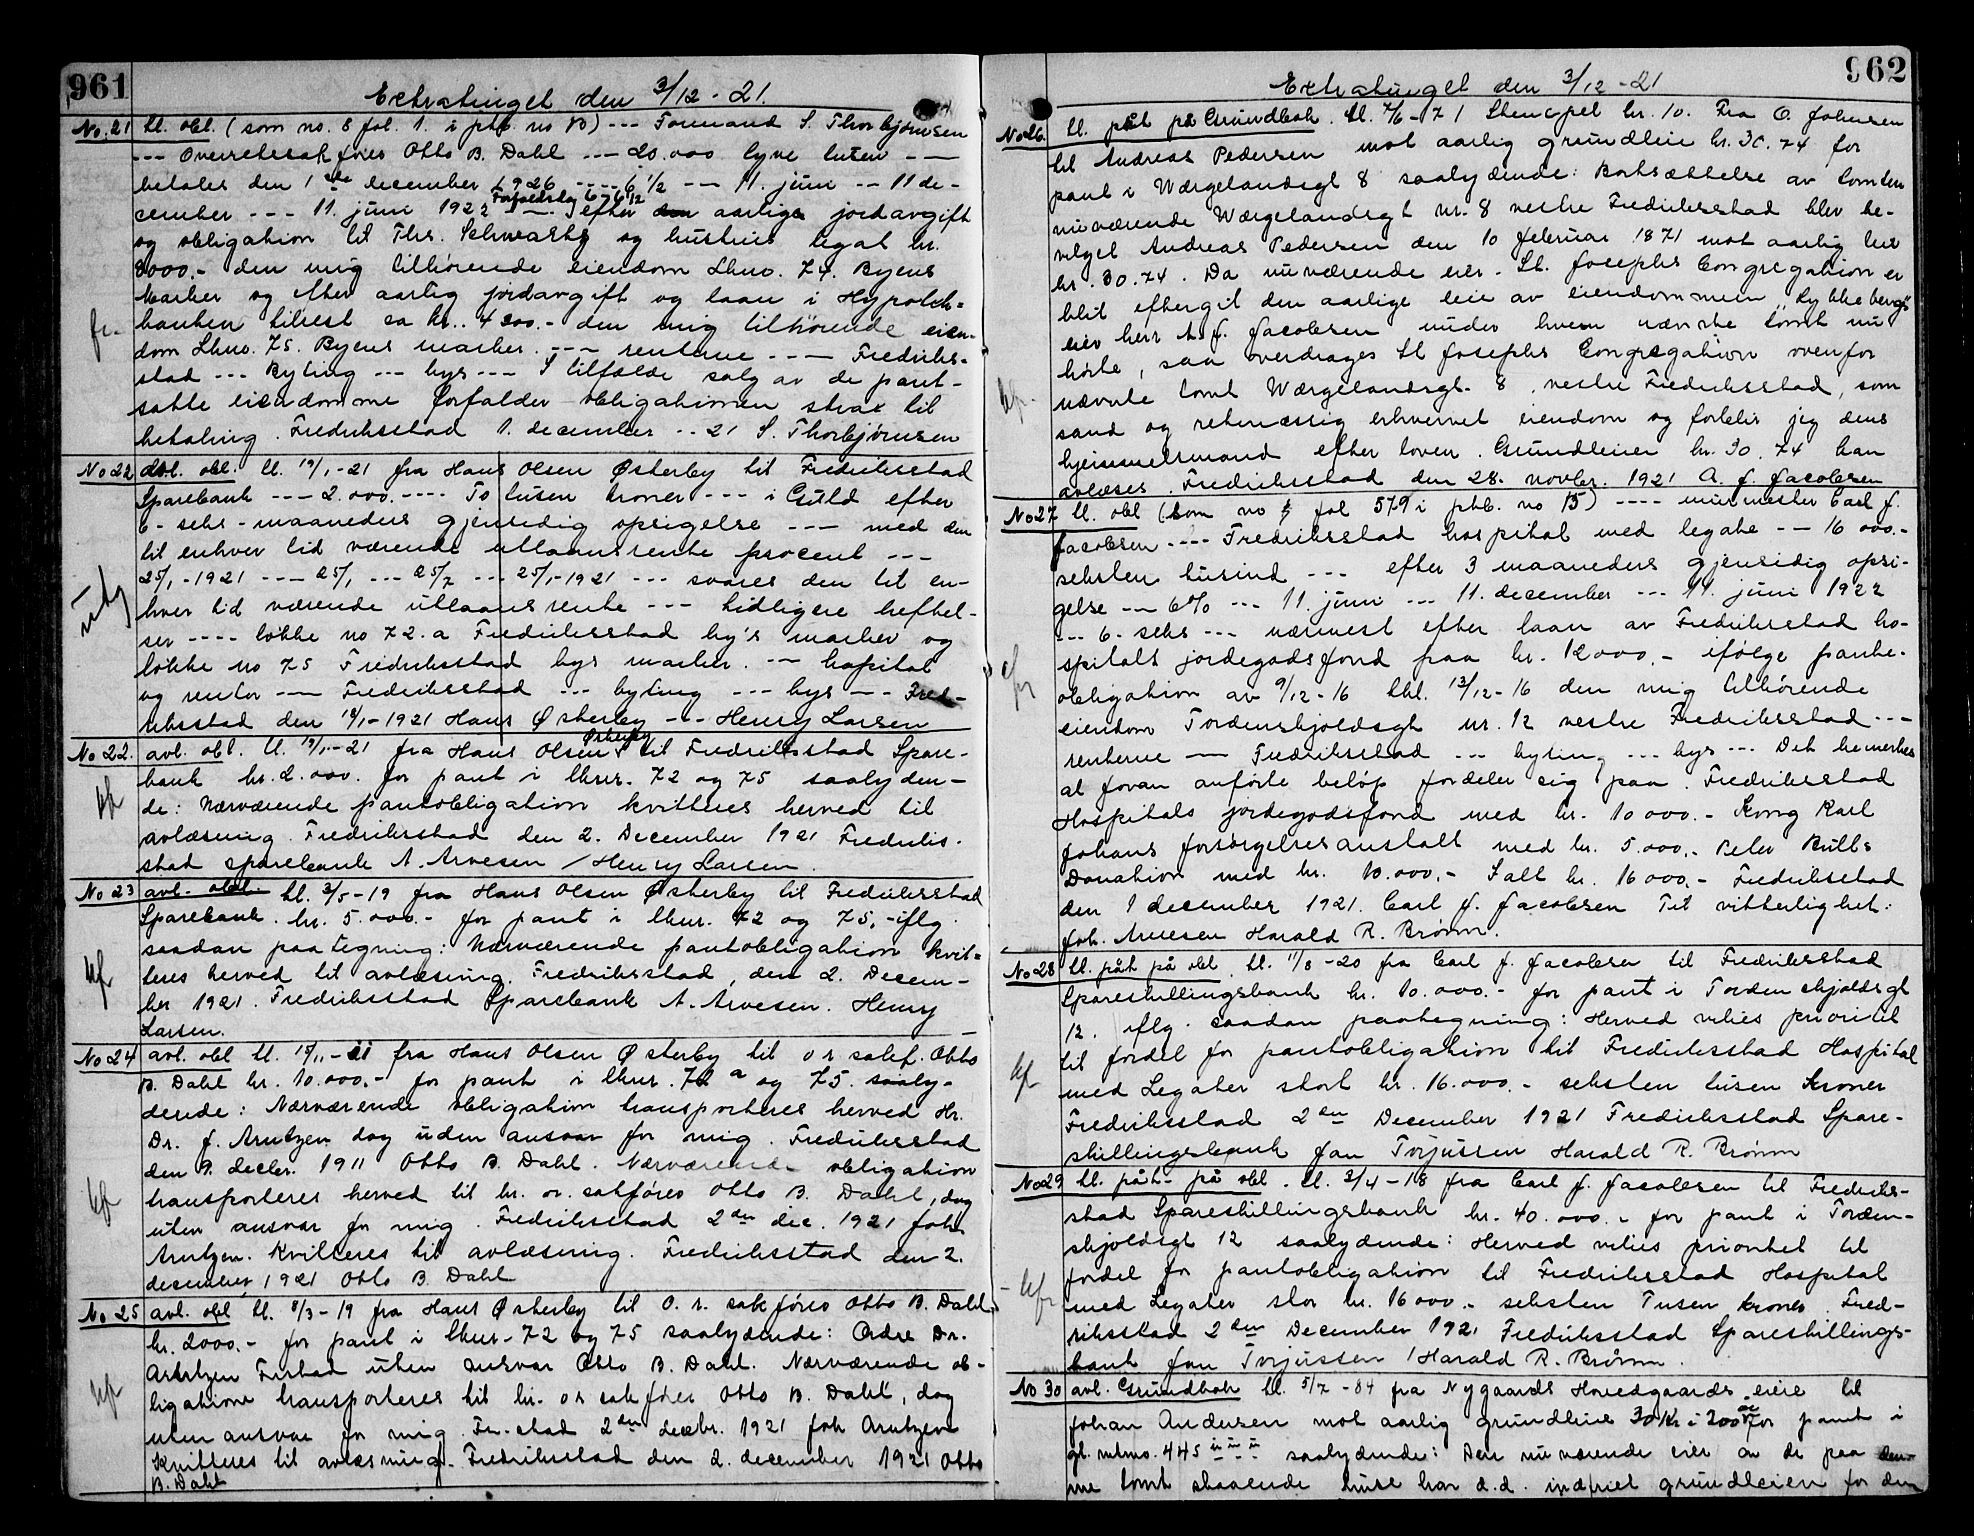 961
Extratinget den 3/12 - 21.
No. 21 tl. obl. (som no. 8 fol. 1. i ptb. no B) --- Formand S. Thorbjørnsen
--- Overretssakfører Otto B. Dahl --- 20.000 tyve tusen ---
betales den 1ste december 1926 ---- 6 1/2 --- 11. juni -- 11 de-
Forfaldsdag 6-6 1/2
cember --- 11. juni 1922 --- efter aarlige jordavgift
og obligation til Thr. Schwartz og hustrus legat kr.
8000.- den mig tilhørende eiendom Lkno. 74. Byens
Marker og efter aarlig jordavgift og laan i Hypotek-
banken tilrest ca kr. 4300.- den mig tilhørende eien-
fr.
dom Lkno. 75. Byens marker. --- renterne --- Fredriks-
stad --- Byting --- bys --- I tilfælde salg av de pant-
satte eiendomme forfalder obligationen strax til
betaling. Fredriksstad 1. december -- 21 S. Thorbjørnsen
No 22 obl. tl. 19/1-21 fra Hans Olsen Østerby til Fredriksstad
Sparebank --- 2.000. ---- To tusen kroner --- i Guld efter
6-seks-maaneders gjensidig opsigelse --- med den
til enhver tid værende utlaansrente procent ---
25/1-1921 --- 25/1 --- 25/7 --- 25/1-1921 --- svares den til en-
hver tid værende utlaansrente --- tidligere heftel-
ser ---- løkke no 72.a Fredriksstad by's marker og
løkke no 75 Fredriksstad bys marker. --- kapital
og renter --- Fredriksstad --- byting --- bys --- Fred-
riksstad den 18/1-1921 Hans Østerby --- Henry Larsen
No 22. avl. obl. tl. 19/1-21 fra Hans Olsen Østerby til Fredriksstad Spare-
bank kr. 2.000. for pant i lknr. 72 og 75 saalyden-
kf
de: Nærværende pantobligation kvitteres herved til
avlæsning. Fredriksstad den 2. December 1921 Fredriks-
stad sparebank A. Arvesen / Henry Larsen.
No 23 avl. obl. tl. 3/5-19 fra Hans Olsen Østerby til Fredriksstad
Sparebank. kr. 5.000.- for pant i lknr. 72 og 75,- iflg.
saadan paategning: Nærværende pantobligation kvit-
kf
teres herved til avlæsning. Fredriksstad, den 2. Decem-
ber 1921. Fredriksstad Sparebank A. Arvesen. Henry
Larsen.
No 24 avl. obl tl. 18/11-11 fra Hans Olsen Østerby til o r sakf. Otto
B. Dahl kr. 10.000.- for pant i lknr. 72 a og 75. saaly-
dende: Nærværende obligation transporteres herved Hr.
Dr. J. Arntzen dog uden ansvar for mig. Fredriksstad
den 9. decbr. 1911 Otto B. Dahl. Nærværende obligation
kf
transporteres herved til hr. or. sakfører Otto B. Dahl, dog
uten ansvar for mig. Fredriksstad 2den dec. 1921 Joh
Arntzen. Kvitteres til avlæsning. Fredriksstad den 2.
december 1921 Otto B. Dahl
No 25 avl. obl tl. 8/3-19 fra Hans Østerby til O. r. sakfører Otto B. Dahl
kr. 2000.- for pant i lknr- 72 og 75 saalydende: Ordre Dr.
Arntzen Fr.stad uten ansvar Otto B. Dahl. Nærværende ob-
kf
ligation transporteres til hr. o r sakfører Otto B. Dahl, dog
uten ansvar for mig. Fr.-stad 2den decbr. 1921 Joh Arntzen
Kvitteres til avlæsning. Fredriksstad den 2. december 1921 Otto
B. Dahl
962
Extratinget den 3/12 - 21
No 26. tl. påt på Grundbok. tl. 7/6-71 Stempel kr. 10. Fra O. Johnsen
til Andreas Pedersen mot aarlig grundleie kr. 30.74 for
pant i Wærgelandsgt 8 saalydende: Bortsættelse av tomten
nuværende Wærgelandsgt nr. 8 vestre Fredriksstad blev be-
vilget Andreas Pedersen den 10 februar 1871 mot aarlig leie
kr. 30.74. Da nuværende eier - St. Josephs Congregation er
blit eftergit den aarlige leie av eiendommen "Lykkeberg"s
eier herr A. J. Jacobsen under hvem nævnte tomt nu
hørte, saa overdrages St Josephs Congregation ovenfor
kf.
nævnte tomt Wærgelandsgt. 8, vestre Fredriksstad, som
sand og retmæssig erhvervet eiendom og forblir jeg dens
hjemmelsmand efter loven. Grundleien kr. 30.74 kan
avlæses. Fredriksstad den 28. novbr. 1921 A. J. Jacobsen
No 27 tl. obl (som no fol 579 i ptb. no 15) ---- murmester Carl J.
Jacobsen ---- Fredriksstad hospital med legater --- 16 000.-
seksten tusind --- efter 3 maaneders gjensidig opsi-
gelse --- 6% --- 11. juni --- 11. december --- 11. juni 1922
--- 6-seks --- nærmest efter laan av Fredriksstad ho-
spitals jordegodsfond paa kr. 12000.- ifølge pante-
obligation av 9/12-16 tl. 13/12-16 den mig tilhørende
eiendom Tordenskjoldsgt nr. 12 vestre Fredriksstad ---
renterne --- Fredriksstad --- byting --- bys --- Det bemerkes
at foran anførte beløp fordeler sig paa. Fredriksstad
Hospitals jordegodsfond med kr. 10 000.- Kong Karl
Johans forsørgelsesanstalt med kr. 5.000.- Peter Bulls
Donation med kr. 10.000.- Ialt kr. 16 000.- Fredriksstad
den 1 december 1921. Carl J. Jacobsen Til vitterlighet:
Joh. Arvesen Harald R. Brønn.
No 28 tl. påt på obl. tl. 11/8-20 fra Carl J. Jacobsen til Fredriksstad
Spareskillingsbank kr. 10.000.- for pant i Tordenskjoldsgt
12. iflg. saadan paategning: Herved vikes prioritet
til fordel for pantobligation til Fredriksstad Hospital
kf
med Legater stort kr. 16.000.- seksten tusen kroner
Fredriksstad 2den December 1921 Fredriksstad Spare-
skillingsbank Jan Torjussen Harald R. Brønn
No 29 tl. påt- på obl. tl. 3/4-18 fra Carl J. Jacobsen til Fredriks-
stad Spareskillingsbank kr. 40.000.- for pant i Torden-
skjoldsgt 12 saalydende: Herved vikes prioritet til
fordel for pantobligation til Fredriksstad Hospital
kf
med Legater stor kr. 16 000.- seksten Tusen kroner. Fred-
riksstad 2den December 1921 Fredriksstad Spareskillings-
bank Jan Torjussen / Harald R. Brønn.
No 30 avl. Grundbok tl. 5/7-84 fra Nygaards Hovedgaards eiere til
Johan Andersen mot aarlig grundleie 30 Kr i 200 for pant i
gl. mtno. 445 saalydende: Den nuværende eier av de paa den-
ne tomt staaende huse har d.d. indfriet grundleien for den